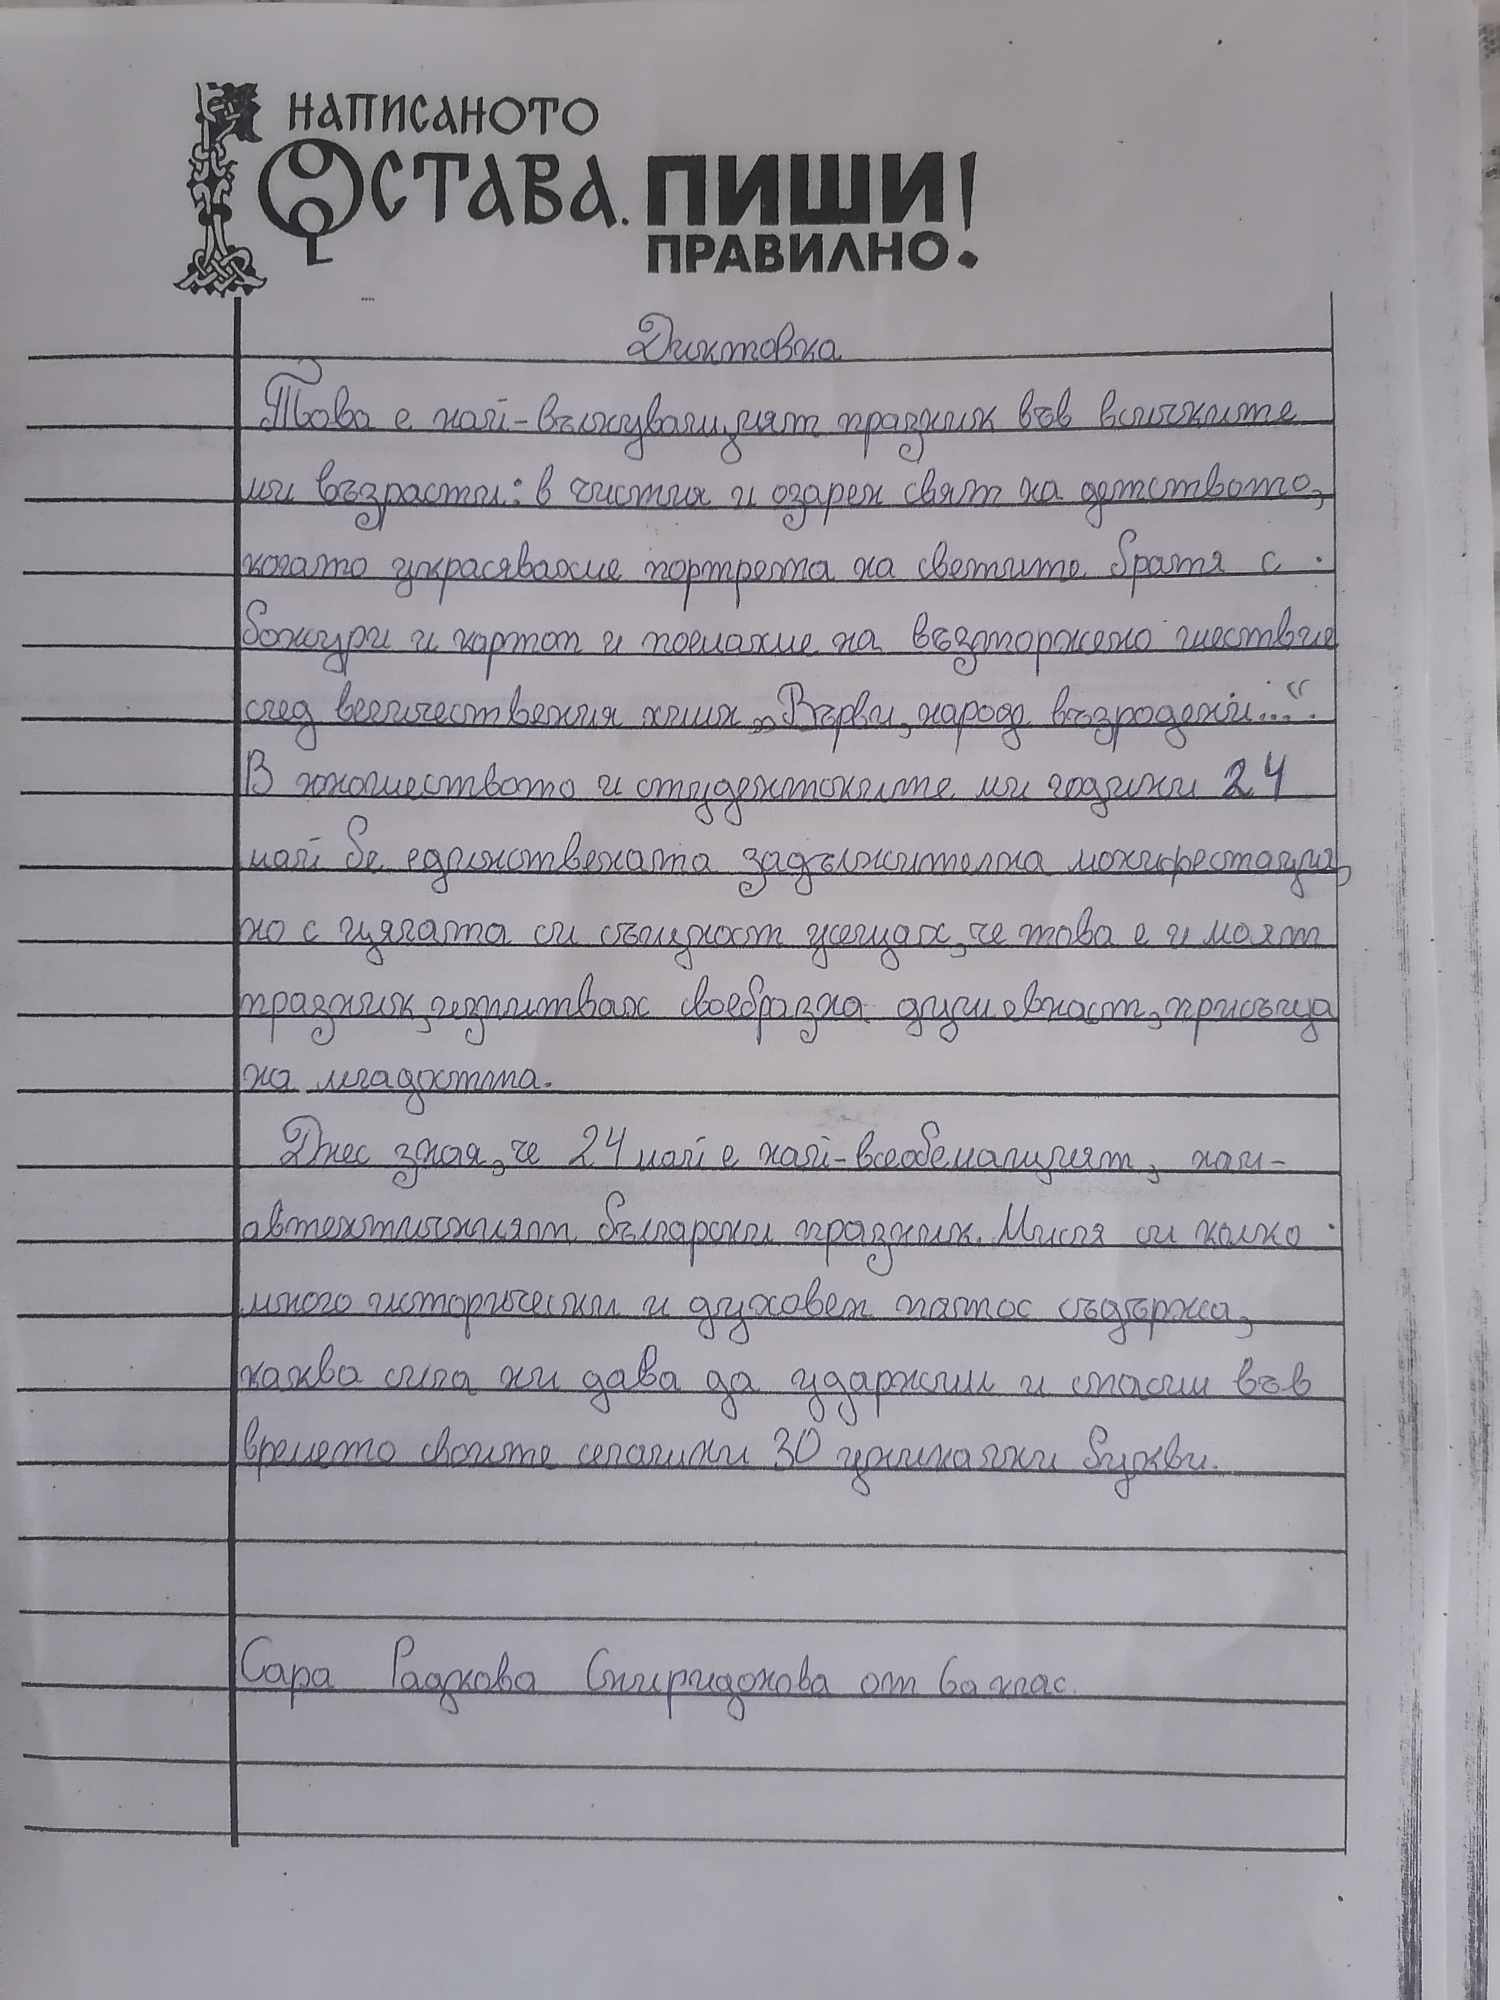 НАПИСАНОТО
ОСТАВА. ПИШИ
ПРАВИЛНО!
Диктовка
Това е най-вълнуващият празник във всичките
ми възрасти: в чистия и озарен свят на детството,
когато украсявахме портрета на светите братя с
божури и картон и поемахме на възторжено шествие
след величествения химн „Върви, народе възродени...“.
В юношеството и студентските ми години 24
май бе единствената задължителна монифестация,
но с цялата си същност усещах, че това е и моят
празник, изпитвах своебразна душевност, присъща
на младостта.
Днес зная, че 24 май е най-всеобемащият, най-
автентичният български празник. Мисля си колко
много исторически и духовен патос съдържа,
каква сила ни дава да удържим и спасим във
времето своите сепащни 30 уникални букви.
Сара Радкова Спиридонова от 6а клас.